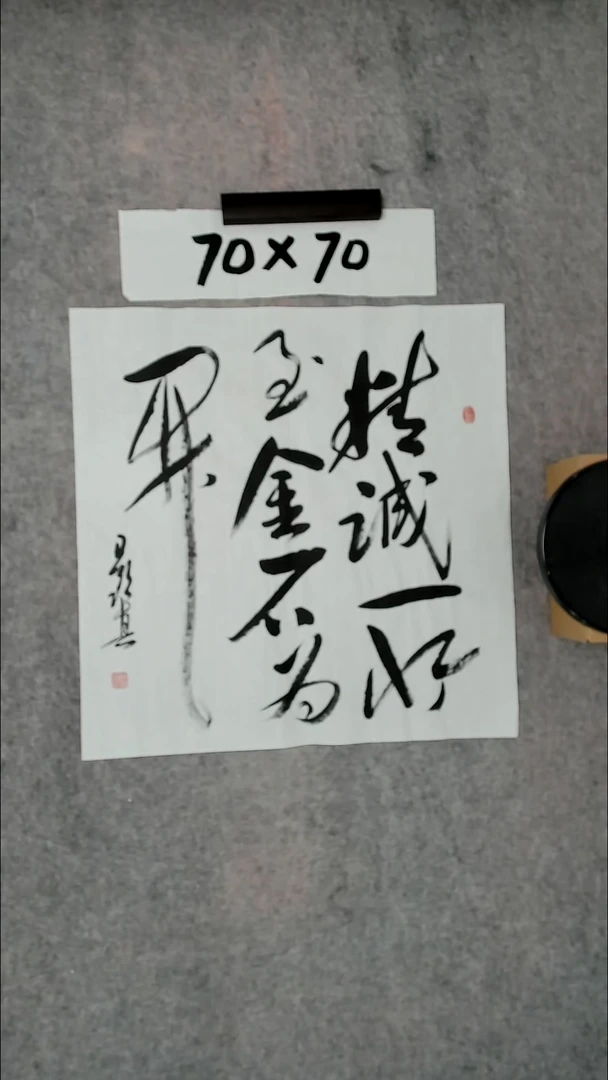 70×70
精诚所
至金石为
开